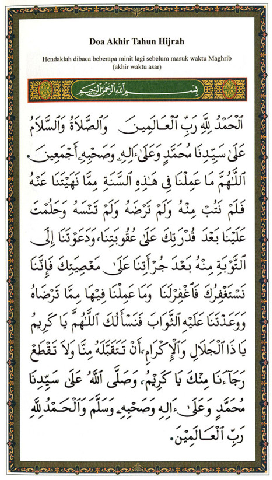 Doa Akhir Tahun Hijrah
Hendaklah dibaca beberapa minit lagi sebelum masuk waktu Maghrib
(akhir waktu asar)
بِسْمِ اللهِ الرَّحْمٰنِ الرَّحِيْمِ
الْحَمْدُ لِلَّهِ رَبِّ الْعَالَمِينَ وَالصَّلَاةُ وَالسَّلَامُ
عَلَى سَيِّدِنَا مُحَمَّدٍ وَعَلَى آلِهِ وَصَحْبِهِ أَجْمَعِينَ.
اللَّهُمَّ مَا عَمِلْنَا فِي هَذِهِ السَّنَةِ مِمَّا نَهَيْتَنَا عَنْهُ
فَلَمْ نَتُبْ مِنْهُ وَلَمْ تَرْضَهُ وَلَمْ تَنْسَهُ وَحَلُمْتَ
عَلَيْنَا بَعْدَ قُدْرَتِكَ عَلَى عُقُوبَتِنَا، وَدَعَوْتَنَا إِلَى
التَّوْبَةِ مِنْهُ بَعْدَ جُرْأَتِنَا عَلَى مَعْصِيَتِكَ فَإِنَّنَا
نَسْتَغْفِرُكَ فَاغْفِرْ لَنَا وَمَا عَمِلْنَا فِيهَا مِمَّا تَرْضَاهُ
وَوَعَدْتَنَا عَلَيْهِ الثَّوَابَ فَنَسْأَلُكَ اللَّهُمَّ يَا كَرِيمُ
يَا ذَا الْجَلَالِ وَالْإِكْرَامِ، أَنْ تَتَقَبَّلَهُ مِنَّا وَلَا تَقْطَعْ
رَجَاءَنَا مِنْكَ يَا كَرِيمُ، وَصَلَّى اللَّهُ عَلَى سَيِّدِنَا
مُحَمَّدٍ وَعَلَى آلِهِ وَصَحْبِهِ وَسَلَّمَ وَالْحَمْدُ لِلَّهِ
رَبِّ الْعَالَمِينَ.